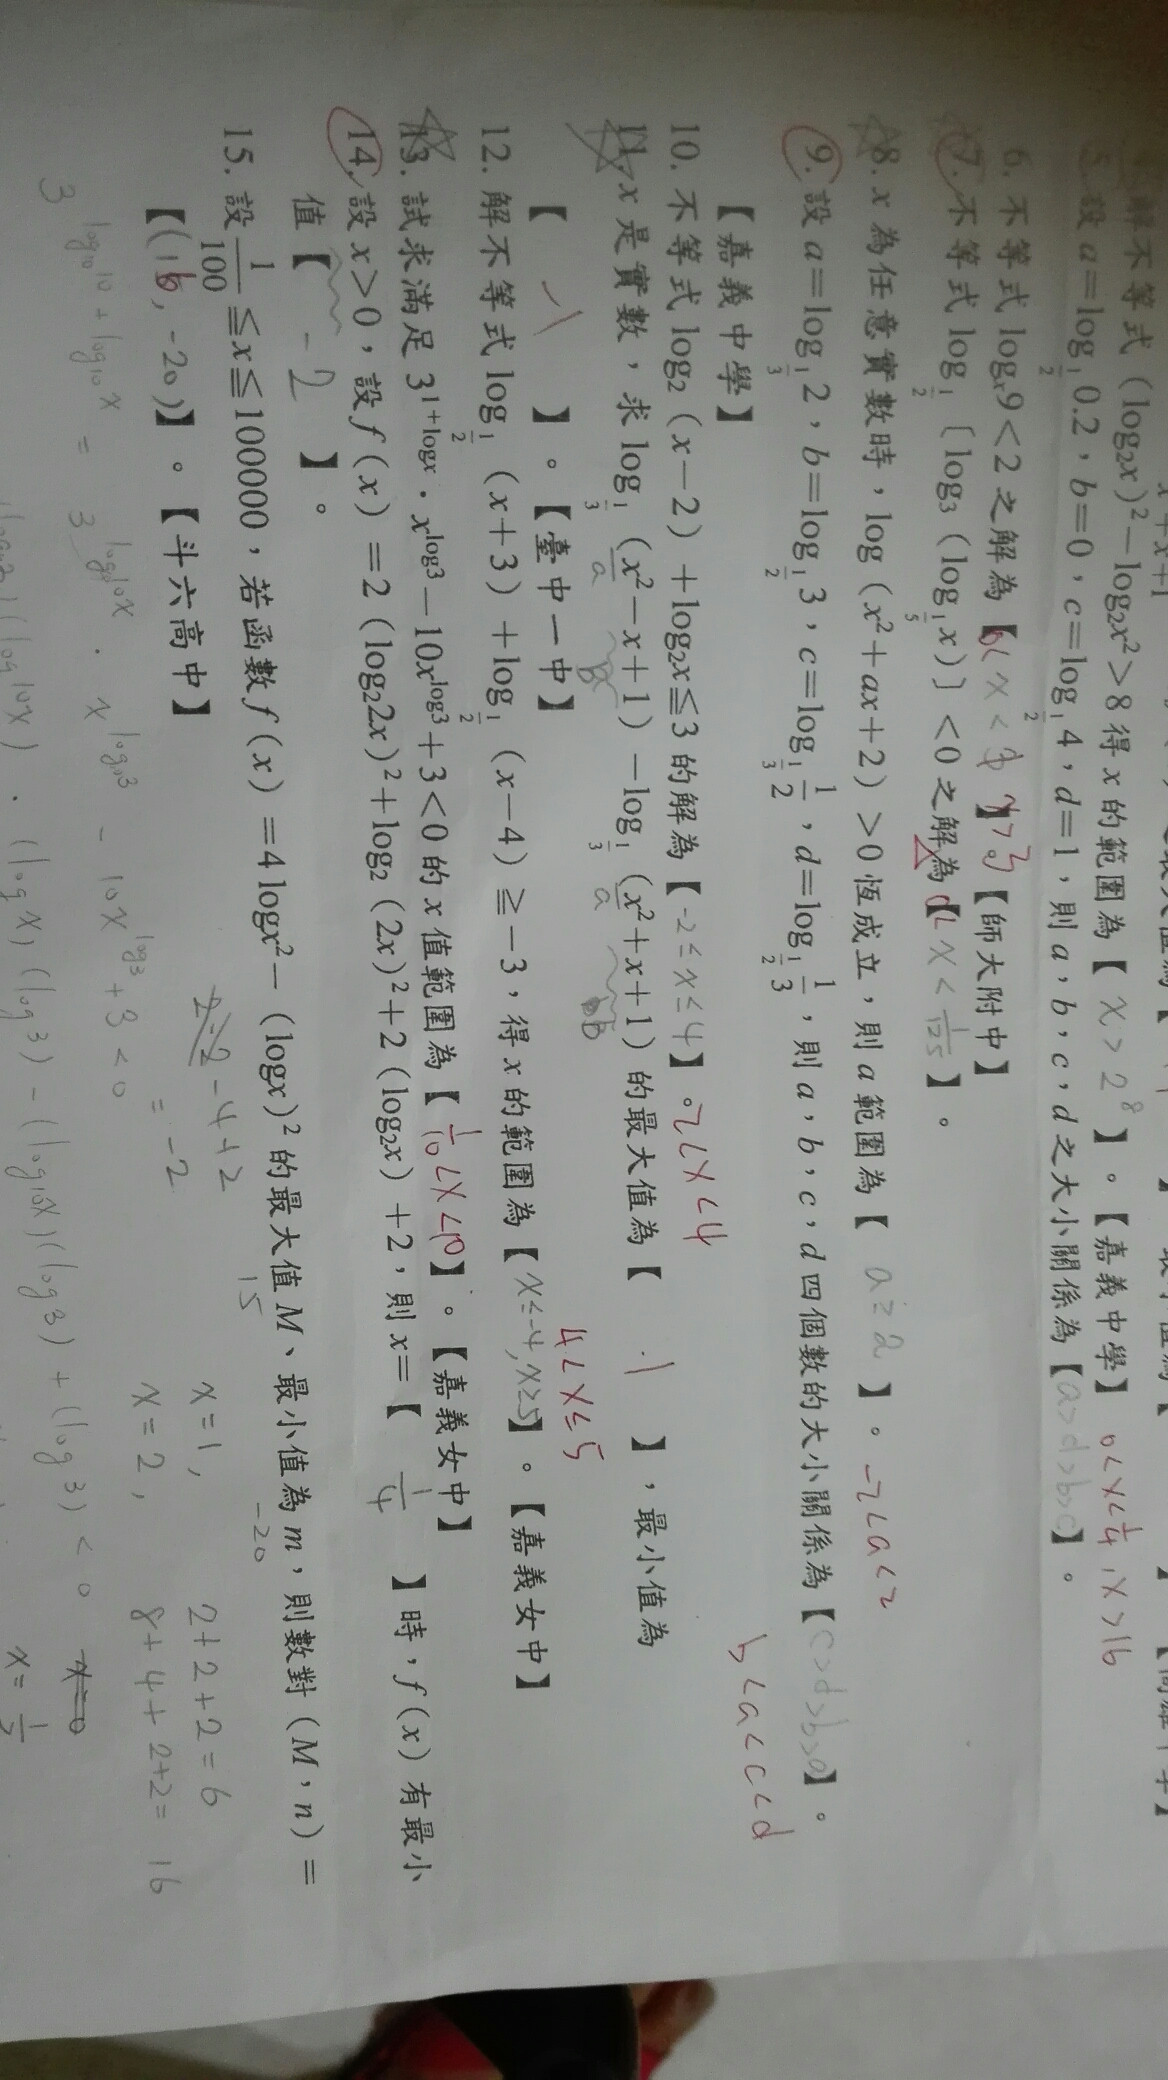 解不等式(log₂x)²－log₂x²＞8得x的範圍為【 x>2⁸ 】。【嘉義中學】 0<x<1/4, x>16
設a＝log_{1/2}0.2，b＝0，c＝log_{1/2}4，d＝1，則a，b，c，d之大小關係為【a>d>b>c】。
6. 不等式logₓ9＜2之解為【0<x<1 x>3】【師大附中】
7. 不等式log_{1/2}〔log₃(log_{1/5}x)〕＜0之解為【 <x<1/125】。
8. x為任意實數時，log(x²＋ax＋2)＞0恆成立，則a範圍為【 a≥2 】。 -2<a<2
9. 設a＝log_{1/3}2，b＝log_{1/2}3，c＝log_{1/3}1/2，d＝log_{1/2}1/3，則a，b，c，d四個數的大小關係為【c>d>b>a】。
【嘉義中學】 b<a<c<d
10. 不等式log₂(x－2)＋log₂x≦3的解為【-2≤x≤4】。 2<x<4
11. x是實數，求log_{1/3}(x²－x＋1)－log_{1/3}(x²＋x＋1)的最大值為【 1 】，最小值為
a B a B
【 】。【臺中一中】
12. 解不等式log_{1/2}(x＋3)＋log_{1/2}(x－4)≧－3，得x的範圍為【x≤-4, x≥5】。【嘉義女中】
4<x≤5
13. 試求滿足3^{1＋logx}．x^{log3}－10x^{log3}＋3＜0的x值範圍為【1/10<x<10】。【嘉義女中】
14. 設x＞0，設f(x)＝2(log₂x)²＋log₂(2x)²＋2(log₂x)＋2，則x＝【 1/4 】時，f(x)有最小
值【 -2 】。
15. 設1/100≦x≦100000，若函數f(x)＝4logx²－(logx)²的最大值M、最小值為m，則數對(M，n)＝
15 -20
【(16, -20)】。【斗六高中】
-4+2
= -2
x=1, 2+2+2=6
x=2, 8+4+2+2= 16
3^{log₁₀10+log₁₀x} = 3^{log₁₀10x} · x^{log₁₀3} - 10x^{log3} + 3 < 0
(log10x) · (logx)(log3) - (log10x)(log3) + (log3) < 0